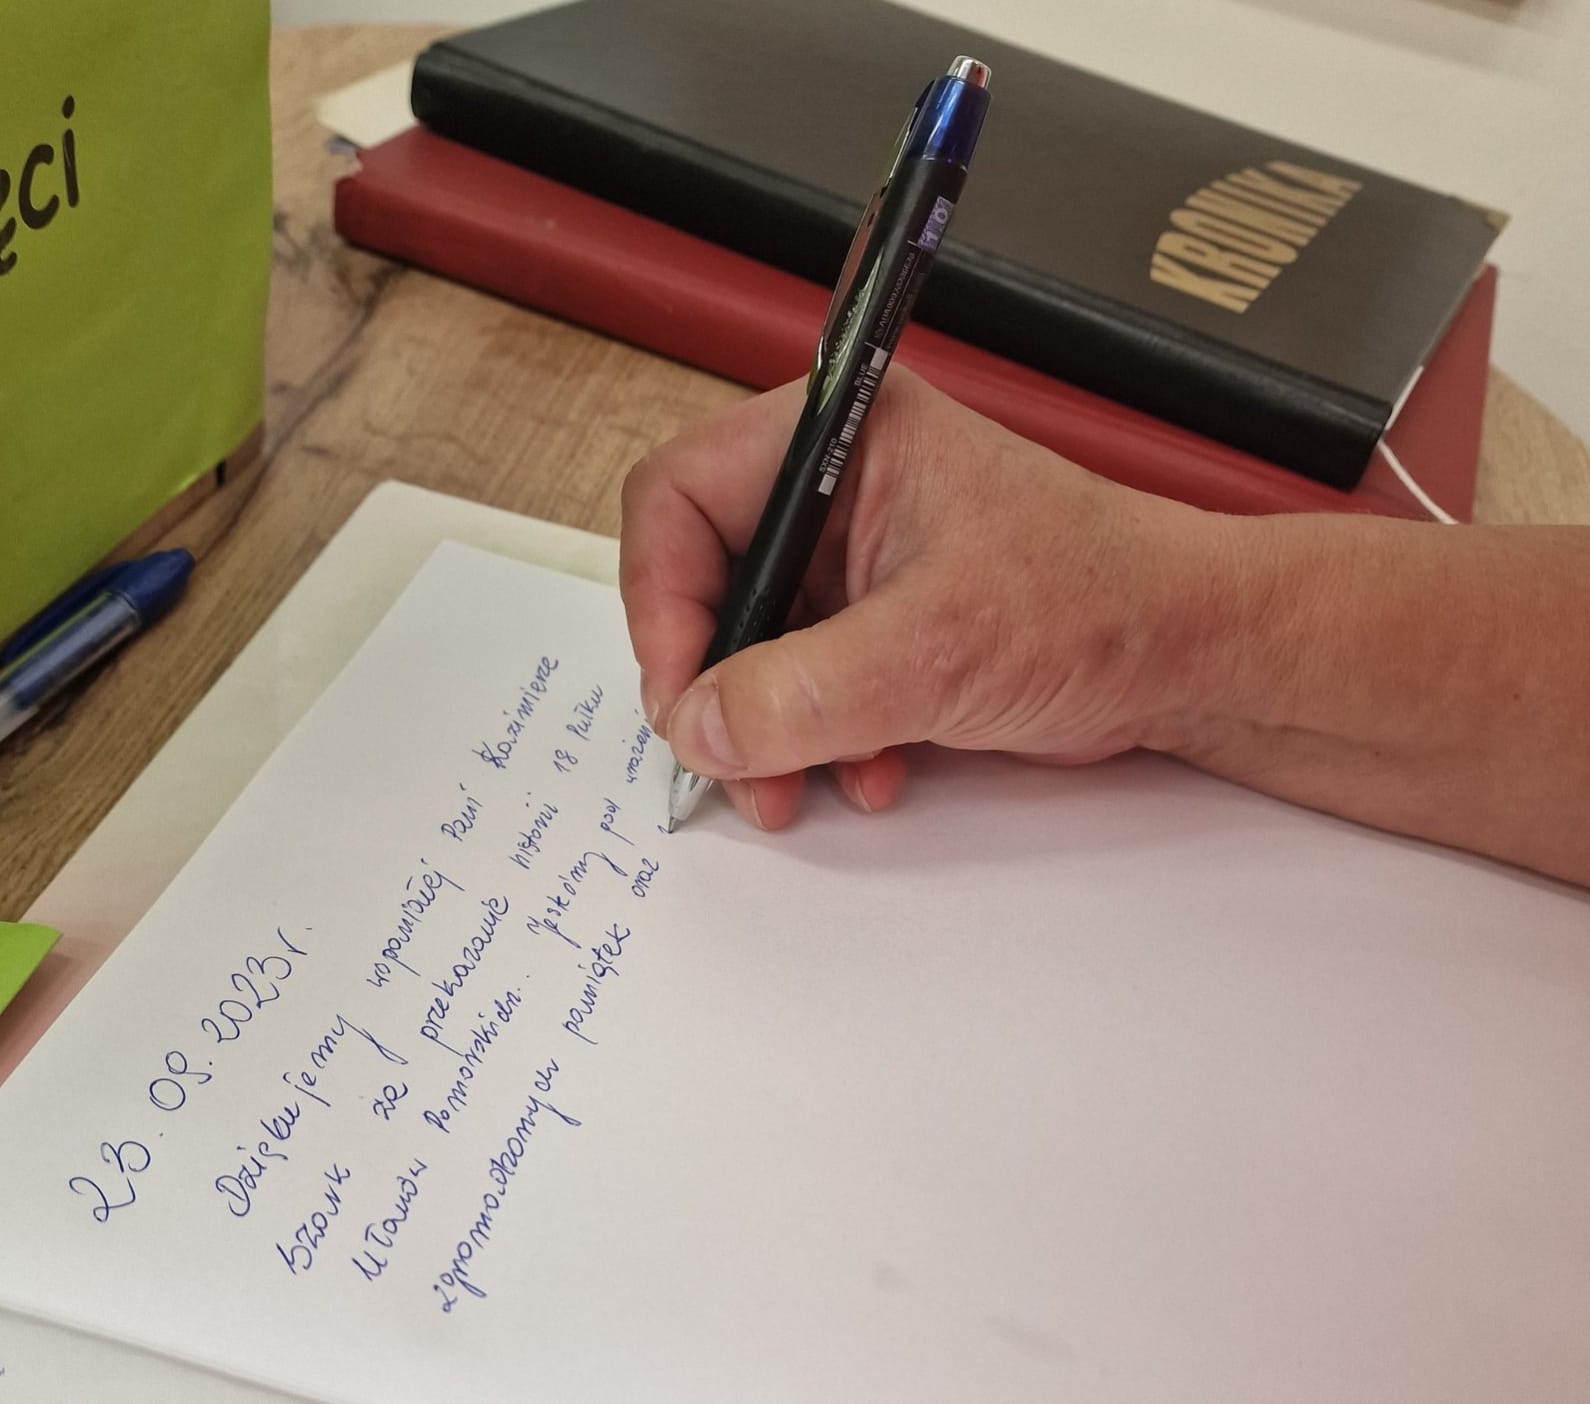 ęci
KRONIKA
BLUE
SXN-210
23.09.2023r.
Dziękujemy wspaniałej Pani Kazimierze
Szark za przekazanie historii 18 Pułku
Ułanów Pomorskich. Jesteśmy pod wrażeni
zgromadzonych pamiątek oraz